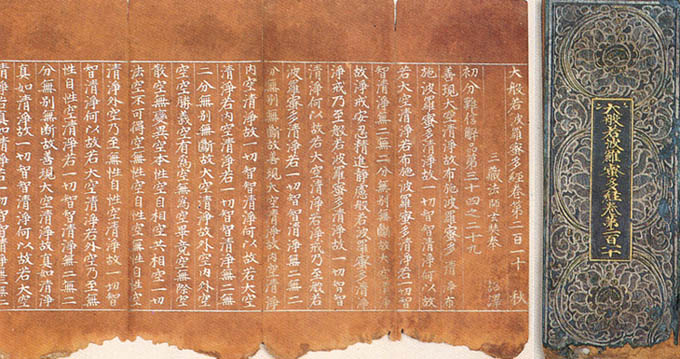 大般若波羅蜜多經卷第二百一十 秋
三藏法師玄奘奉 詔譯
初分難信解品第三十四之二十九
善現大空清淨故布施波羅蜜多清淨布
施波羅蜜多清淨故一切智智清淨何以故
若大空清淨若布施波羅蜜多清淨若一切智
智清淨無二無二分無別無斷故大空清淨
故淨戒安忍精進靜慮般若波羅蜜多清淨
淨戒乃至般若波羅蜜多清淨故一切智智
清淨何以故若大空清淨若淨戒乃至般若
波羅蜜多清淨若一切智智清淨無二無二
分無別無斷故善現大空清淨故內空清淨
內空清淨故一切智智清淨何以故若大空
清淨若內空清淨若一切智智清淨無二無
二分無別無斷故大空清淨故外空內外空
空空勝義空有為空無為空畢竟空無際空
散空無變異空本性空自相空共相空一切
法空不可得空無性空自性空無性自性空
清淨外空乃至無性自性空清淨故一切智
智清淨何以故若大空清淨若外空乃至無
性自性空清淨若一切智智清淨無二無二
分無別無斷故善現大空清淨故真如清淨
真如清淨故一切智智清淨何以故若大空
清淨若真如清淨若一切智智清淨無二
大般若波羅蜜多經卷第二百一十